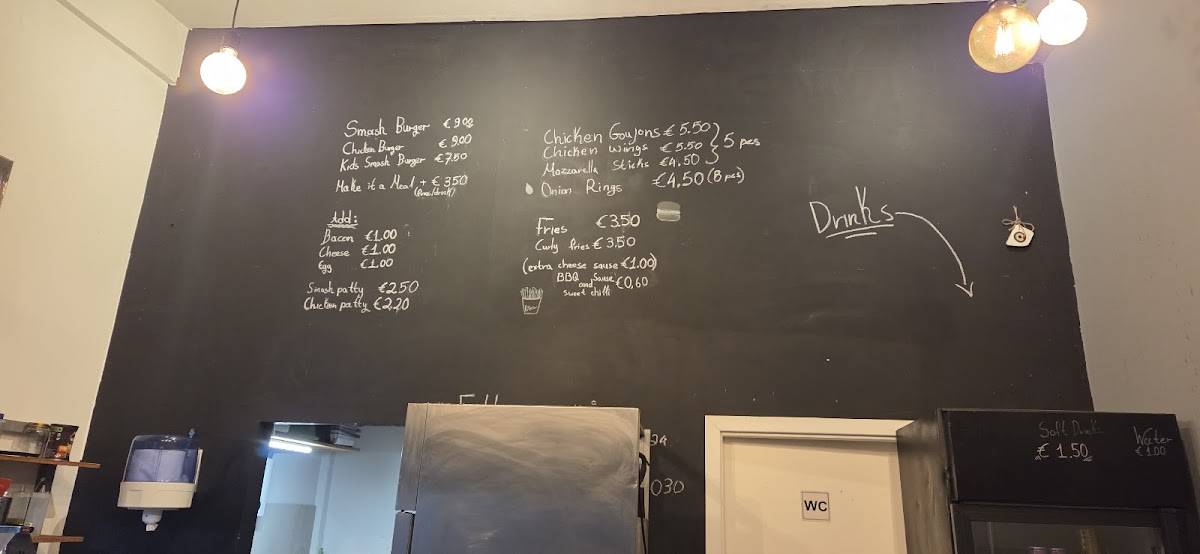 Smash Burger € 9.00
Chicken Burger € 9.00
Kids Smash Burger €7.50
Make it a Meal + € 3.50
(fries/drink)
Add:
Bacon €1.00
Cheese €1.00
Egg €1.00
Smash patty €2.50
Chicken patty €2.20
Chicken Goujons € 5.50
Chicken Wings € 5.50
Mozzarella Sticks €4.50
5 pcs
Onion Rings €4.50 (8 pcs)
Fries €3.50
Curly fries € 3.50
(extra cheese sause €1.00)
BBQ Sause
and €0,60
sweet chilli
Drinks
24
030
WC
Soft Drink
€ 1.50
Water
€ 1.00